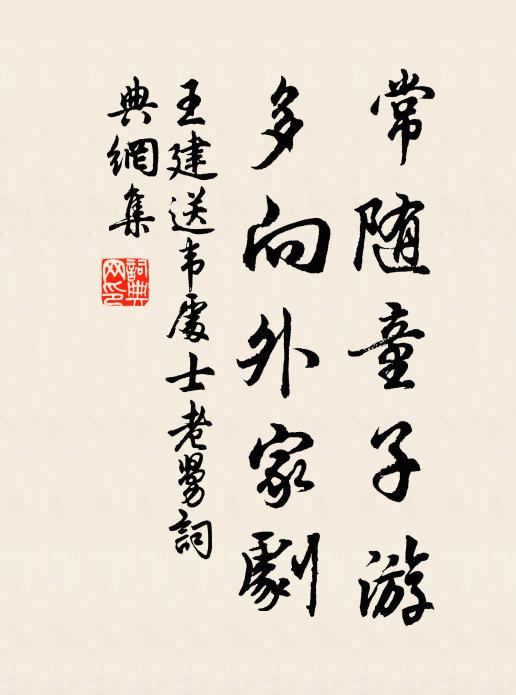 常随童子游
多向外家劇
王建送韦處士老舅詞
典網集
詞典
网印